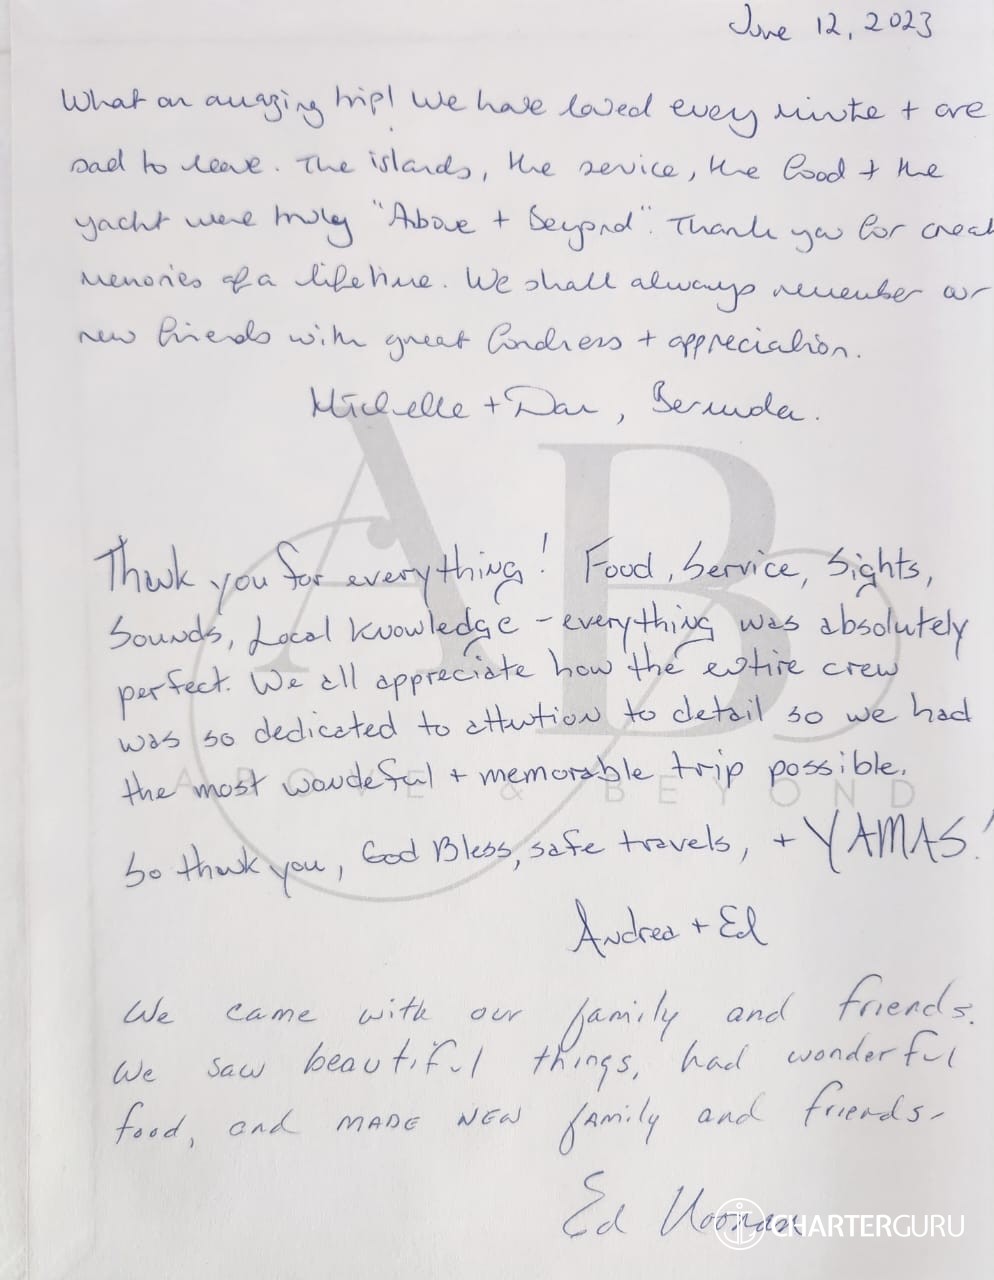 June 12, 2023
What an amazing trip! We have loved every minute + are
sad to leave. The islands, the service, the food + the
yacht were truly "Above + Beyond". Thank you for creat
memories of a lifetime. We shall always remember our
new friends with great fondness + appreciation.
Michelle + Dan, Bermuda.
AB
Thank you for everything! Food, Service, Sights,
Sounds, Local Knowledge - everything was absolutely
perfect. We all appreciate how the entire crew
was so dedicated to attention to detail so we had
the most wonderful + memorable trip possible.
ABOVE & BEYOND
So thank you, God Bless, safe travels, + YAMAS!
Andrea + Ed
We came with our family and friends.
We saw beautiful things, had wonderful
food, and MADE NEW family and friends.
Ed
CHARTERGURU